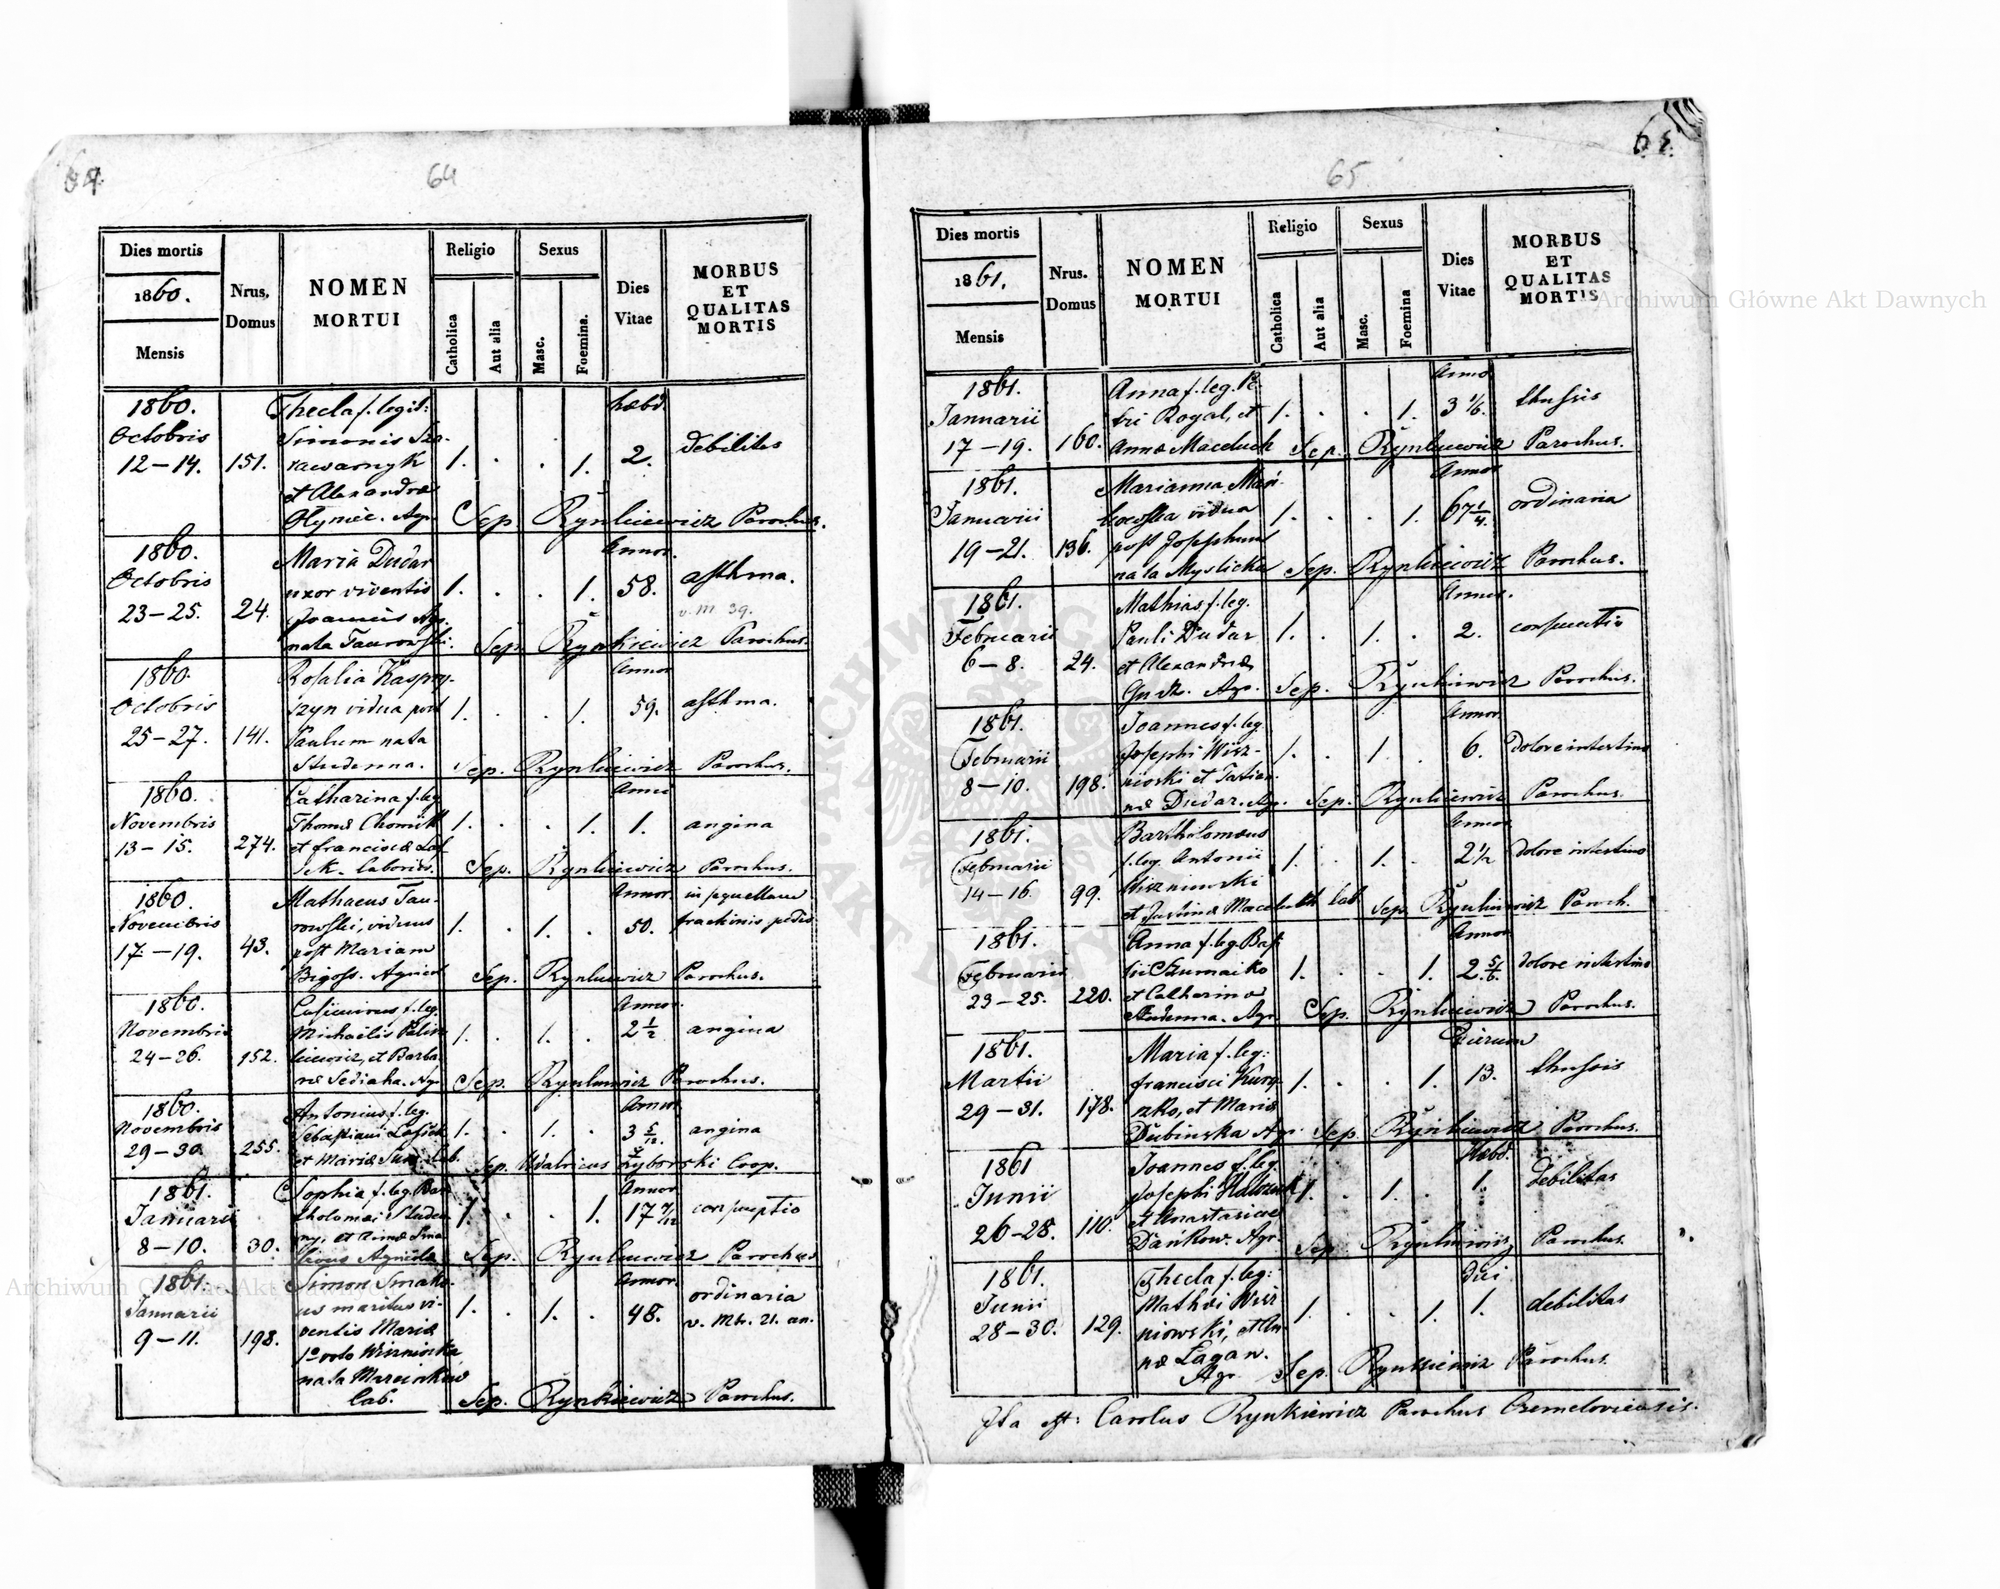 64.
64
Dies mortis
1860.
Mensis
Nrus. Domus
NOMEN MORTUI
Religio
Catholica
Aut alia
Sexus
Masc.
Foemina.
Dies Vitae
MORBUS ET QUALITAS MORTIS
1860.
Octobris
12-14. 151.
Thecla f. legit:
Simonis
et Alexandra
Agr.
1. . . 1.
hebd.
2.
debilitas
Sep. Rynkiewicz Parochus.
1860.
Octobris
23-25. 24.
Maria Dudar
uxor viventis
Joannis Agr.
nata
1. . . 1.
Annor.
58.
asthma.
v. m. 39.
Sep. Rynkiewicz Parochus.
1860.
Octobris
25-27. 141.
Rosalia Kaspry-
szyn vidua post
Paulum nata
Studenna.
1. . . 1.
Annor.
59.
asthma.
Sep. Rynkiewicz Parochus.
1860.
Novembris
13-15. 274.
Catharina f. leg.
Thomæ Chomik
et Franciscæ
1. . . 1.
Anni
1.
angina
Sep. Rynkiewicz Parochus.
1860.
Novembris
17-19. 43.
Mathaeus Tau-
rowski, viduus
post Mariam
Agricol
1. . 1. .
Annor.
50.
in sequellam
pedis
Sep. Rynkiewicz Parochus.
1860.
Novembris
24-26. 152.
f. leg.
Michaelis
et Barba-
ræ Agr.
1. . 1. .
Annor.
2 1/2
angina
Sep. Rynkiewicz Parochus.
1860.
Novembris
29-30 255.
Antonius f. leg.
Sebastiani
et Mariæ
1. . 1. .
Annor.
3 5/12.
angina
Sep. Udalricus Zyborski Coop.
1861.
Januarii
8-10. 30.
Sophia f. leg. Bar
tholomæi Studen
ny, et Annæ
Agricolæ
1. . . 1.
Annor.
17 7/12
consumptio
Sep. Rynkiewicz Parochus
1861.
Januarii
9-11. 198.
Simon
maritus vi-
ventis Mariæ
1º voto
nata
Lab.
1. . 1. .
Annor.
48.
ordinaria
v. Mtr. 21. an.
Sep. Rynkiewicz Parochus.
65.
65
Dies mortis
1861.
Mensis
Nrus. Domus
NOMEN MORTUI
Religio
Catholica
Aut alia
Sexus
Masc.
Foemina
Dies Vitae
MORBUS ET QUALITAS MORTIS
1861.
Januarii
17-19. 160.
Anna f. leg. Pe-
tri Rogal, et
Annæ Maceluch
1. . . 1.
Annor.
3 1/6.
thussis
Sep. Rynkiewicz Parochus.
1861.
Januarii
19-21. 136.
Marianna
vidua
post Josephum
nata Myslicka
1. . . 1.
Annor
67 1/4.
ordinaria
Sep. Rynkiewicz Parochus.
1861.
Februarii
6-8. 24.
Mathias f. leg.
Pauli Dudar
et Alexandræ
Agr.
1. . 1. .
Annor.
2.
Sep. Rynkiewicz Parochus.
1861.
Februarii
8-10. 198.
Joannes f. leg.
Josephi Wisz-
niowski et Tatian-
næ Dudar. Agr.
1. . 1. .
Annor.
6.
dolore intestino
Sep. Rynkiewicz Parochus.
1861.
Februarii
14-16. 99.
Bartholomæus
f. leg. Antonii
Wiszniowski
et Justinæ Maceluch Lab
1. . 1. .
Annor
2 1/2
dolore intestino
Sep. Rynkiewicz Paroch.
1861.
Februarii
23-25. 220.
Anna f. leg. Bas-
ilii Szumaiko
et Catharinæ
Studenna. Agr.
1. . . 1.
Annor
2 5/6.
dolore intestino
Sep. Rynkiewicz Parochus.
1861.
Martii
29-31. 178.
Maria f. leg:
Francisci
et Mariæ
Dubinska Agr.
1. . . 1.
Dierum
13.
thussis
Sep. Rynkiewicz Parochus.
1861
Junii
26-28. 110.
Joannes f. leg.
Josephi
et Anastasiae
Dańkow. Agr.
1. . 1. .
Hebd.
1.
debilitas
Sep. Rynkiewicz Parochus.
1861.
Junii
28-30. 129.
Thecla f. leg:
Mathæi Wisz
niowski, et An-
næ Łagan.
Agr.
1. . . 1.
diei
1.
debilitas
Sep. Rynkiewicz Parochus.
Ita est: Carolus Rynkiewicz Parochus
Archiwum Główne Akt Dawnych
Archiwum Główne Akt Dawnych